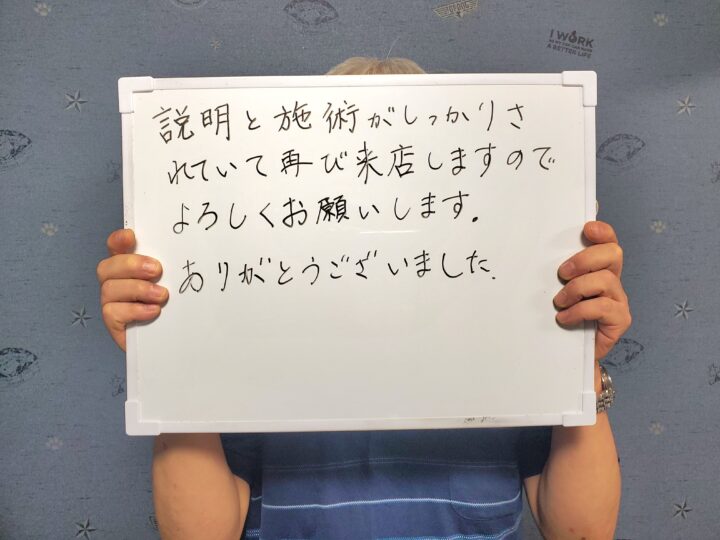 I WORK
A BETTER LIFE
説明と施術がしっかりさ
れていて再び来店しますので
よろしくお願いします。
ありがとうございました.